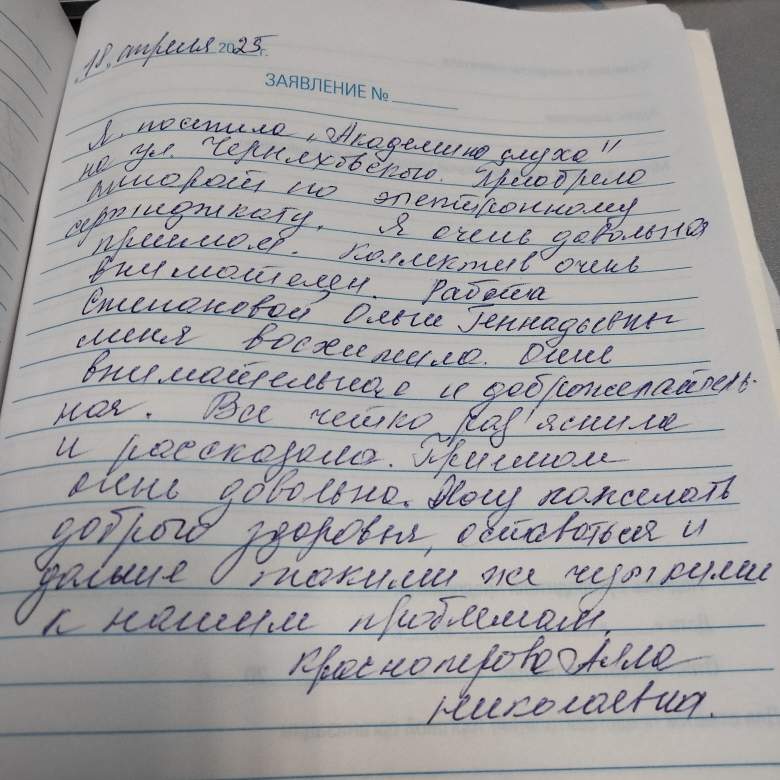 18. апреля 2025 г.
ЗАЯВЛЕНИЕ №
Я посетила „Академию слуха"
на ул. Черняховского. Приобрела
аппарат по электронному
сертификату. Я очень довольная
приёмом. Коллектив очень
внимателен. Работа
Степановой Ольги Геннадьевны
меня восхитила. Очень
внимательная и доброжелатель-
ная. Все четко раз'яснила
и рассказала. Приёмом
очень довольна. Хочу пожелать
доброго здоровья, оставаться и
дальше такими же чуткими
к нашим проблемам.
Красноперова Алла
Николаевна.